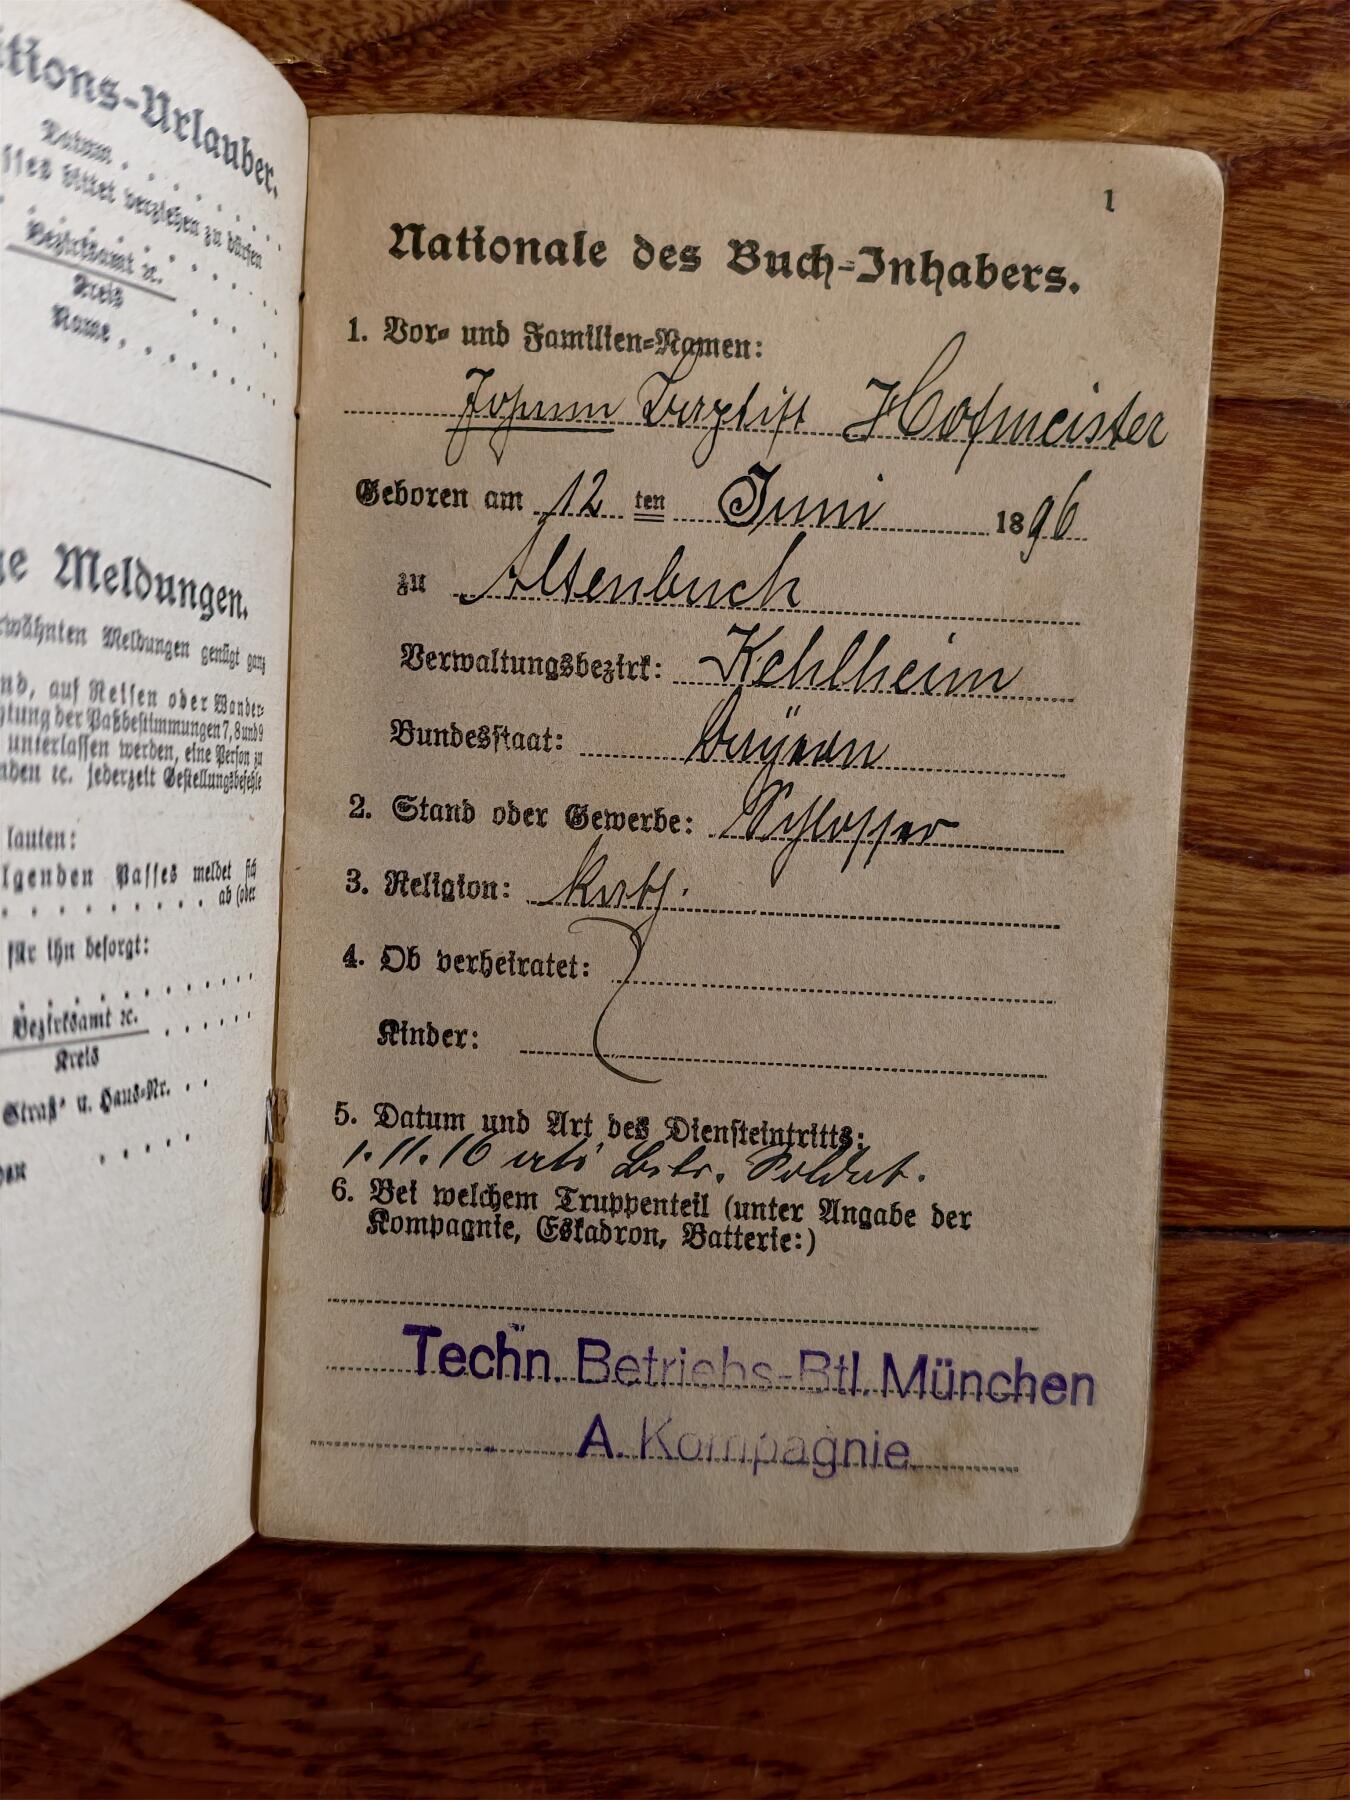 tions-Urlauber.
Datum
sses bittet verziehen zu dürfen
Bezirksamt ꝛc.
Kreis
Name
ge Meldungen.
rwähnten Meldungen genügt ganz
nd, auf Reisen oder Wander-
gtung der Paßbestimmungen 7, 8 und 9
unterlassen werden, eine Person zu
nden ꝛc. jederzeit Gestellungsbefehle
lauten:
lgenden Passes meldet sich
ab (oder
für ihn besorgt:
Bezirksamt ꝛc.
Kreis
Straß- u. Haus-Nr.
1
Nationale des Buch-Inhabers.
1. Vor- und Familien-Namen:
Johann Baptist Hofmeister
Geboren am 12 ten Juni 1896
zu Altenbuch
Verwaltungsbezirk: Kehlheim
Bundesstaat: Bayern
2. Stand oder Gewerbe: Schlosser
3. Religion: kath.
4. Ob verheiratet:
Kinder:
5. Datum und Art des Diensteintritts:
1.11.16 als Soldat.
6. Bei welchem Truppenteil (unter Angabe der
Kompagnie, Eskadron, Batterie:)
Techn. Betriebs-Btl. München
A. Kompagnie